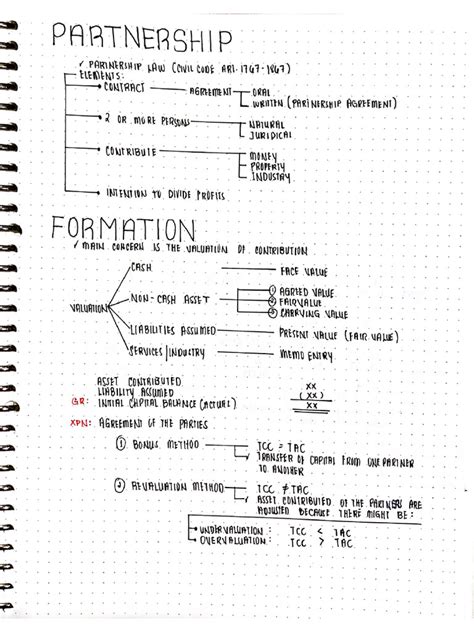 PARTNERSHIP
✓ PARTNERSHIP LAW (CIVIL CODE ART. 1767-1867)
ELEMENTS:
• CONTRACT — AGREEMENT — ORAL
WRITTEN (PARTNERSHIP AGREEMENT)
• 2 OR MORE PERSONS — NATURAL
JURIDICAL
• CONTRIBUTE — MONEY
PROPERTY
INDUSTRY
• INTENTION TO DIVIDE PROFITS
FORMATION
✓ MAIN CONCERN IS THE VALUATION OF CONTRIBUTION
CASH — FACE VALUE
① AGREED VALUE
NON-CASH ASSET — ② FAIR VALUE
VALUATION
③ CARRYING VALUE
LIABILITIES ASSUMED — PRESENT VALUE (FAIR VALUE)
SERVICES/INDUSTRY — MEMO ENTRY
ASSET CONTRIBUTED XX
LIABILITY ASSUMED (XX)
GR: INITIAL CAPITAL BALANCE (ACTUAL) XX
XPN: AGREEMENT OF THE PARTIES
① BONUS METHOD — TCC = TAC
TRANSFER OF CAPITAL FROM ONE PARTNER
TO ANOTHER
② REVALUATION METHOD — TCC ≠ TAC
ASSET CONTRIBUTED OF THE PARTNERS ARE
ADJUSTED BECAUSE THERE MIGHT BE:
• UNDERVALUATION: TCC < TAC
• OVERVALUATION: TCC > TAC